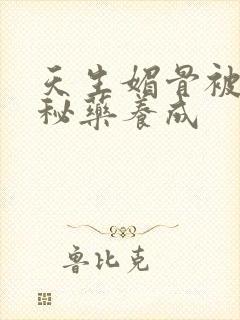 天生媚骨被
秘药养成
鲁比克